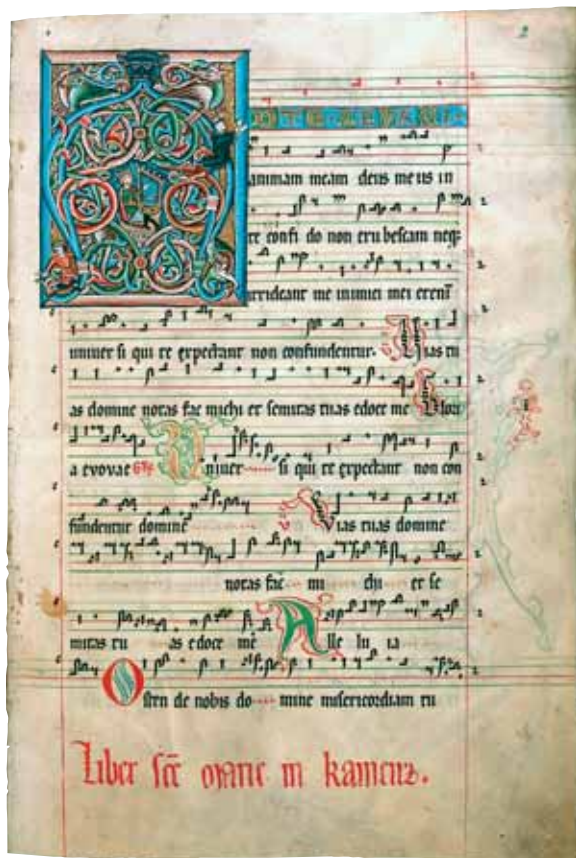 2
D TE LEVAVI
animam meam deus meus in
te confi do non erubescam neq;
irrideant me inimici mei etenī
universi qui te expectant non confundentur. Vias tu
as domine notas fac michi et semitas tuas edoce me Glori
a evovae Gr̄ Univer si qui te expectant non con
fundentur dominē Vias tuas domine
notas fac mi chi et se
mitas tu as edoce mē Alle lu ia
Osten de nobis do mine misericordiam tu
Liber sc̄e Marie in kamenz.